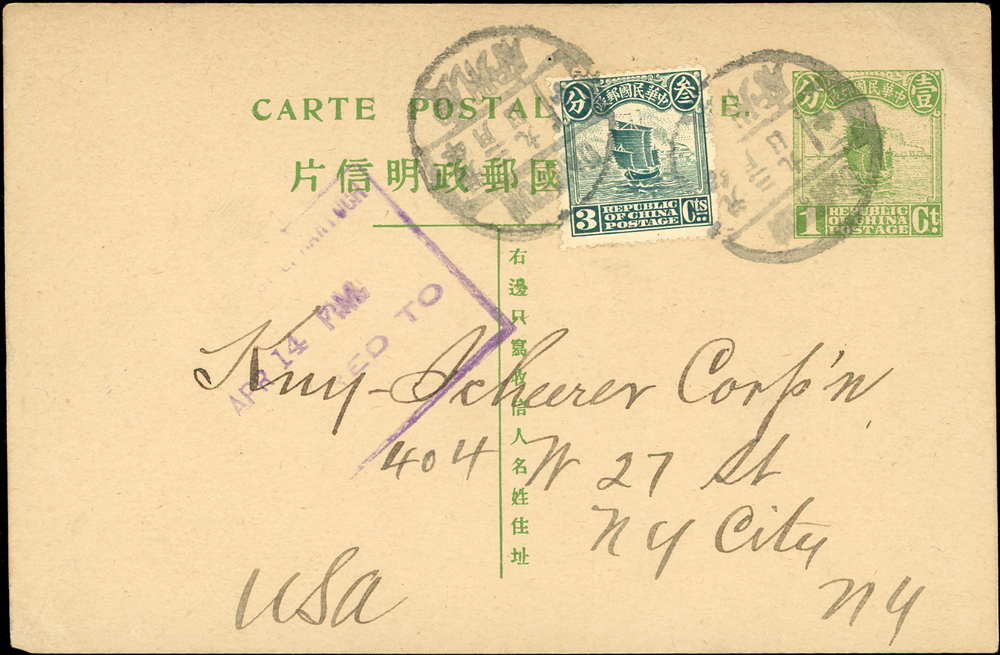 CARTE POSTALE.
片信明政郵國
分 政郵國民華中 叁
3 REPUBLIC OF CHINA POSTAGE Cts
分 政郵國民華中 壹
1 REPUBLIC OF CHINA POSTAGE Ct.
右邊只寫收信人名姓住址
APR 14 PM
TO
Kny-Scheerer Corp'n
404 W 27 St
NY City
NY
USA